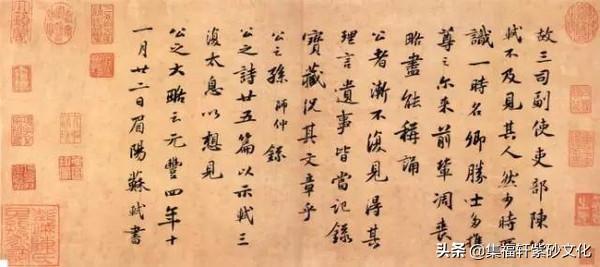 故三司副使吏部陈公
轼不及见其人然少时所
識一時名卿勝士多推
尊之尔来前輩凋喪
略盡能稱誦
公者漸不復見得其
理言遺事皆當記録
寳藏況其文章乎
公之孫師仲録
公之詩廿五篇以示軾三
復太息以想見
公之大略云元豐四年十
一月廿二日眉陽蘇軾書
头条 @集福轩紫砂文化